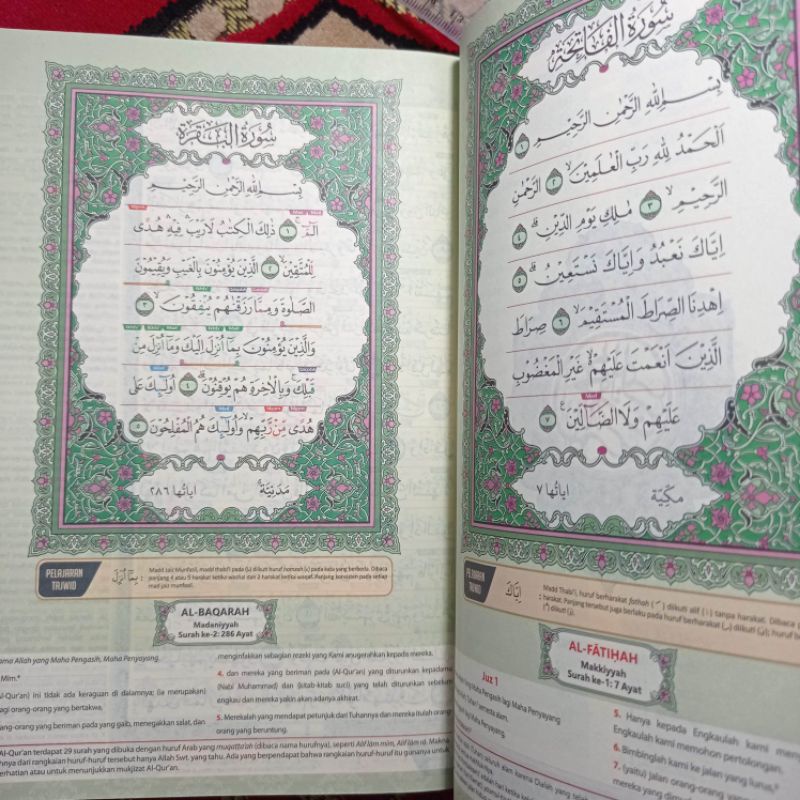 سُورَةُ الْفَاتِحَةِ
بِسْمِ اللّٰهِ الرَّحْمٰنِ الرَّحِيْمِ ١
اَلْحَمْدُ لِلّٰهِ رَبِّ الْعٰلَمِيْنَۙ ٢ الرَّحْمٰنِ
الرَّحِيْمِۙ ٣ مٰلِكِ يَوْمِ الدِّيْنِۗ ٤
اِيَّاكَ نَعْبُدُ وَاِيَّاكَ نَسْتَعِيْنُۗ ٥
اِهْدِنَا الصِّرَاطَ الْمُسْتَقِيْمَۙ ٦ صِرَاطَ
الَّذِيْنَ اَنْعَمْتَ عَلَيْهِمْۙ غَيْرِ الْمَغْضُوْبِ
Mad
عَلَيْهِمْ وَلَا الضَّاۤلِّيْنَࣖ ٧
مكيّة
اياتها ٧
PELAJARAN TAJWID
اِيَّاكَ
Madd Thabi'i, huruf berharakat fathah (َ) diikuti alif (ا) tanpa harakat. Dibaca
harakat. Panjang tersebut juga berlaku pada huruf berharakat
diikuti
AL-FĀTIḤAH
Makkiyyah
Surah ke-1: 7 Ayat
Juz 1
Maha Pengasih lagi Maha Penyayang
semesta alam,
lagi Maha Penyayang,
5. Hanya kepada Engkaulah kami
Engkaulah kami memohon pertolongan.
6. Bimbinglah kami ke jalan yang lurus,
7. (yaitu) Jalan orang-orang yang
mereka yang
سُورَةُ الْبَقَرَةِ
بِسْمِ اللّٰهِ الرَّحْمٰنِ الرَّحِيْمِ
الۤمّۤۚ ١ ذٰلِكَ الْكِتٰبُ لَا رَيْبَۛ فِيْهِۛ هُدًى
لِّلْمُتَّقِيْنَۙ ٢ الَّذِيْنَ يُؤْمِنُوْنَ بِالْغَيْبِ وَيُقِيْمُوْنَ
الصَّلٰوةَ وَمِمَّا رَزَقْنٰهُمْ يُنْفِقُوْنَۙ ٣
وَالَّذِيْنَ يُؤْمِنُوْنَ بِمَآ اُنْزِلَ اِلَيْكَ وَمَآ اُنْزِلَ مِنْ
قَبْلِكَۚ وَبِالْاٰخِرَةِ هُمْ يُوْقِنُوْنَۗ ٤ اُولٰۤىِٕكَ عَلٰى
هُدًى مِّنْ رَّبِّهِمْۙ وَاُولٰۤىِٕكَ هُمُ الْمُفْلِحُوْنَ ٥
مدنيّة
اياتها ٢٨٦
PELAJARAN TAJWID
بِمَآ اُنْزِلَ :
Madd Jaiz Munfasil, madd thabi'i pada (ا) diikuti huruf hamzah (ء) pada kata yang berbeda. Dibaca
panjang 4 atau 5 harakat ketika washal dan 2 harakat ketika waqaf. Panjang konsisten pada setiap
mad jaiz munfasil.
AL-BAQARAH
Madaniyyah
Surah ke-2: 286 Ayat
ama Allah yang Maha Pengasih, Maha Penyayang.
Mim.*
Al-Qur'an) ini tidak ada keraguan di dalamnya; (ia merupakan)
agi orang-orang yang bertakwa,
orang-orang yang beriman pada yang gaib, menegakkan salat, dan
menginfakkan sebagian rezeki yang Kami anugerahkan kepada mereka,
4. dan mereka yang beriman pada (Al-Qur'an) yang diturunkan kepadamu
(Nabi Muhammad) dan (kitab-kitab suci) yang telah diturunkan sebelum
engkau dan mereka yakin akan adanya akhirat.
5. Merekalah yang mendapat petunjuk dari Tuhannya dan mereka itulah orang-
orang yang beruntung.
Al-Qur'an terdapat 29 surah yang dibuka dengan huruf Arab yang muqatta'ah (dibaca nama hurufnya), seperti Alif lām mīm, Alif lām rā. Makna
hnya dari rangkaian huruf-huruf tersebut hanya Allah Swt. yang tahu. Ada yang berpendapat bahwa rangkaian huruf-huruf itu gunanya untuk
erhatian atau untuk menunjukkan mukjizat Al-Qur'an.